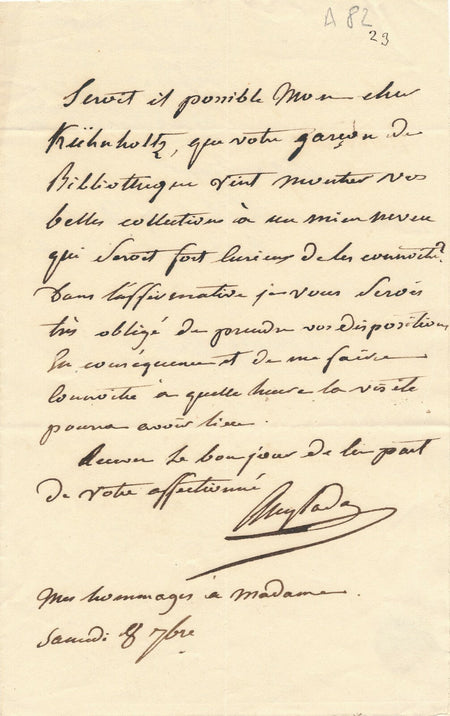 A 82
23
Seroit il possible Mon cher
Kühnholtz, que votre garçon de
Bibliotheque vint montrer vos
belles collections à un mien neveu
qui seroit fort curieux de les connoitre?
Dans l'affirmative je vous serois
très obligé de prendre vos dispositions
En conséquence et de me faire
connoitre à quelle heure la visite
pourra avoir lieu.
Recevez le bonjour de la part
de votre affectionné
Anglada
Mes hommages à Madame.
Samedi 7bre